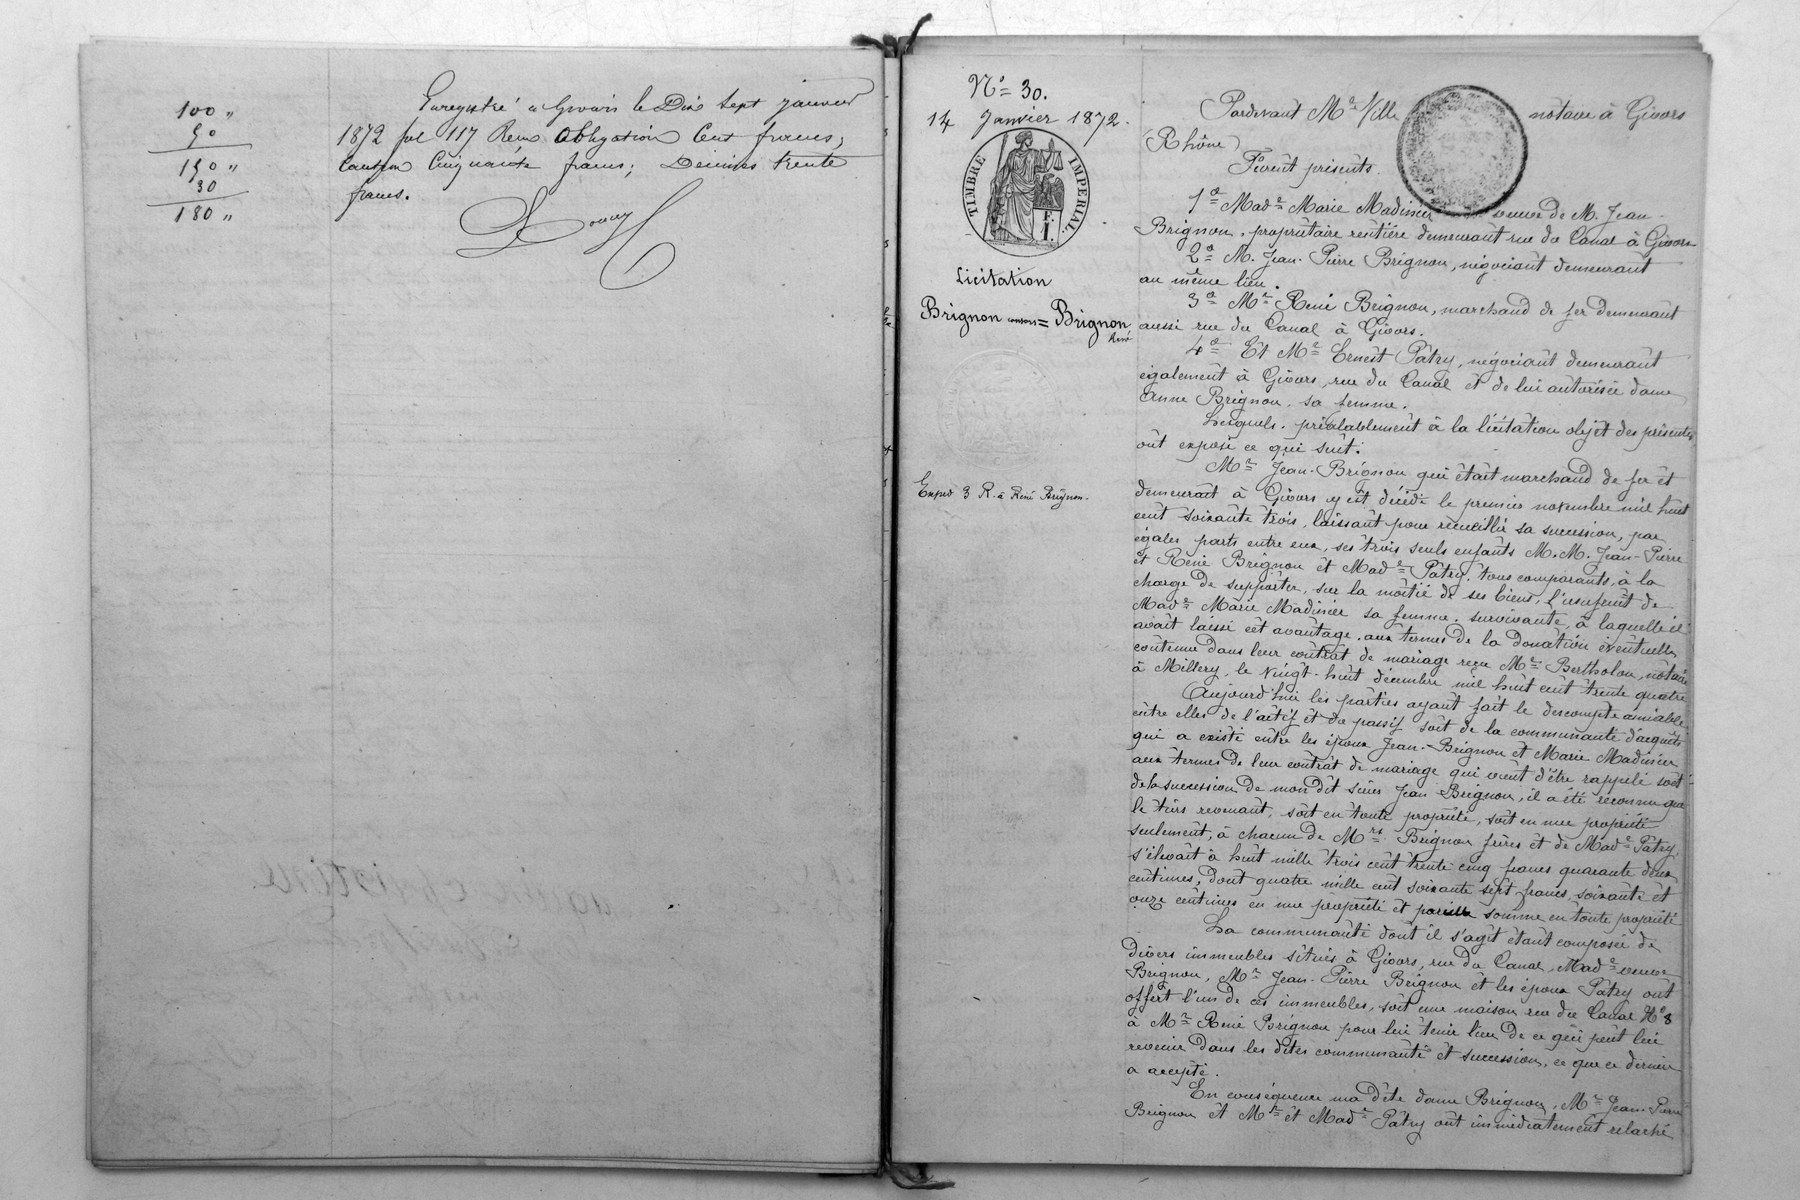 100 "
50
150 "
30
180 "
Enregistré à Givors le Dix Sept janvier
1872 fol 117 Reçu Obligation Cent francs,
Caution Cinquante francs; Décimes trente
francs.
N° 30.
14 Janvier 1872.
TIMBRE IMPERIAL
F. I.
Licitation
Brignon consors = Brignon
René
Exped 3 R. à René Brignon.
Pardevant Me Ville notaire à Givors
(Rhône)
Furent présents
1° Made Marie Madinier veuve de M. Jean
Brignon, propriétaire rentière demeurant rue du Canal à Givors
2° M. Jean-Pierre Brignon, négociant demeurant
au même lieu.
3° Mr René Brignon, marchand de fer demeurant
aussi rue du Canal à Givors.
4° Et Mr Ernest Pâtry, négociant demeurant
également à Givors, rue du Canal et de lui autorisée dame
Anne Brignon, sa femme.
Lesquels, préalablement à la licitation objet des présentes
ont exposé ce qui suit:
Mr Jean Brignon qui était marchand de fer et
demeurait à Givors y est décédé le premier novembre mil huit
cent soixante trois, laissant pour recueillir sa succession, par
égales parts entre eux, ses trois seuls enfants M.M. Jean-Pierre
et René Brignon et Made Pâtry, tous comparants, à la
charge de supporter, sur la moitié de ses biens, l'usufruit de
Made Marie Madinier sa femme survivante, à laquelle il
avait laissé cet avantage, aux termes de la donation éventuelle
contenue dans leur contrat de mariage reçu Mr Bertholon, notaire
à Millery, le vingt-huit décembre mil huit cent trente quatre
Aujourd'hui les parties ayant fait le descompte amiable
entre elles de l'actif et du passif soit de la communauté d'acquêts
qui a existé entre les époux Jean Brignon et Marie Madinier
aux termes de leur contrat de mariage qui vient d'être rappelé soit
de la succession de mon dit sieur Jean Brignon, il a été reconnu que
le tiers revenant, soit en toute propriété, soit en nue propriété
seulement, à chacun de Mrs Brignon frères et de Made Pâtry,
s'élevait à huit mille trois cent trente cinq francs quarante deux
centimes, dont quatre mille cent soixante sept francs, soixante et
onze centimes en nue propriété et pareille somme en toute propriété
La communauté dont il s'agit étant composée de
divers immeubles situés à Givors, rue du Canal, Made veuve
Brignon, Mr Jean-Pierre Brignon et les époux Pâtry ont
offert l'un de ces immeubles, soit une maison rue du Canal N° 8
à Mr René Brignon pour lui tenir lieu de ce qui peut lui
revenir dans les dites communauté et succession, ce que ce dernier
a accepté.
En conséquence ma dite dame Brignon, Mr Jean-Pierre
Brignon et Mr et Made Pâtry ont immédiatement relaché